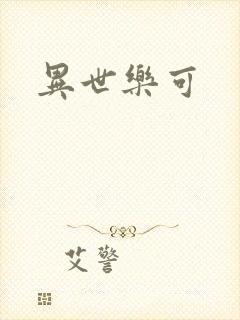 異世樂可
艾警